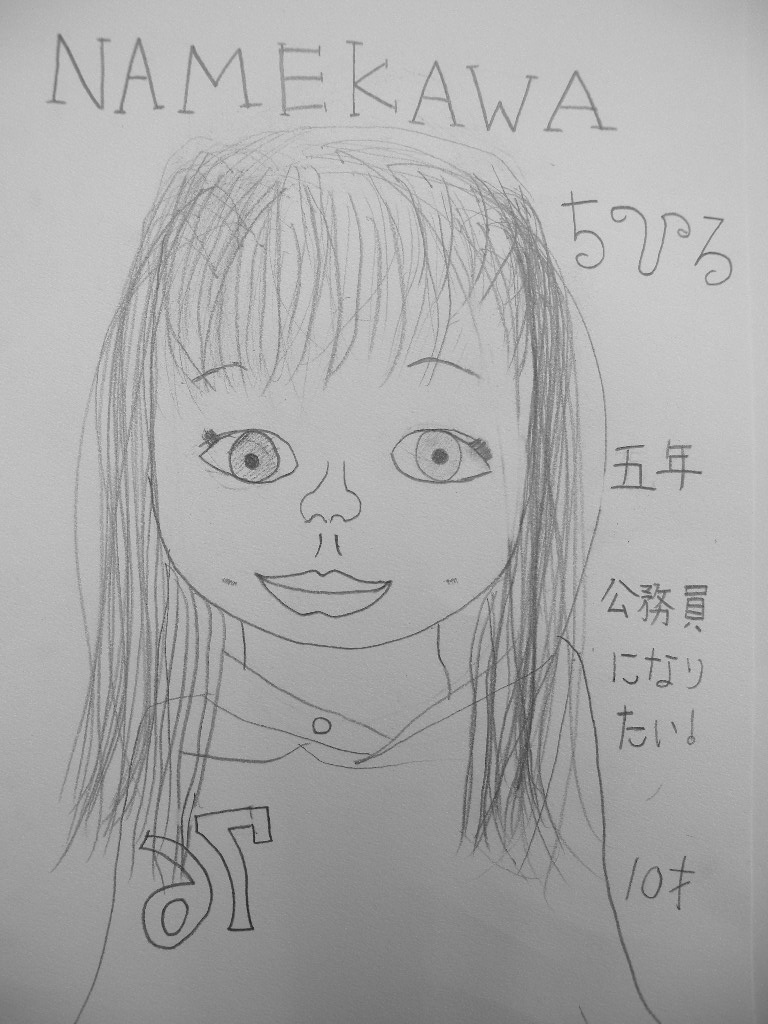 NAMEKAWA
ちひる
五年
公務員
になり
たい!
10才